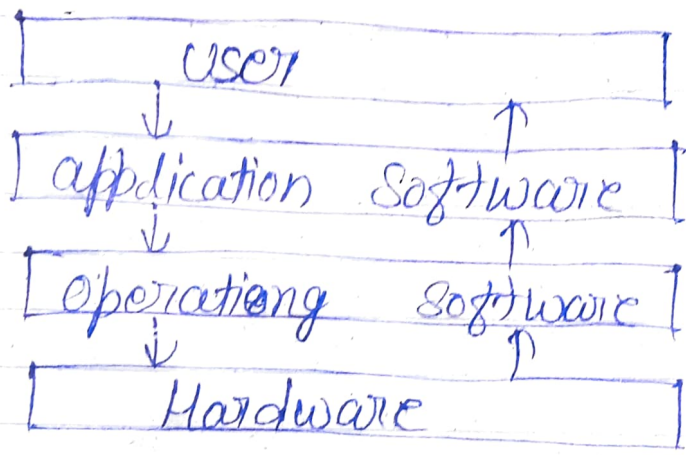 User
appdication Software
Operationg Software
Hardware